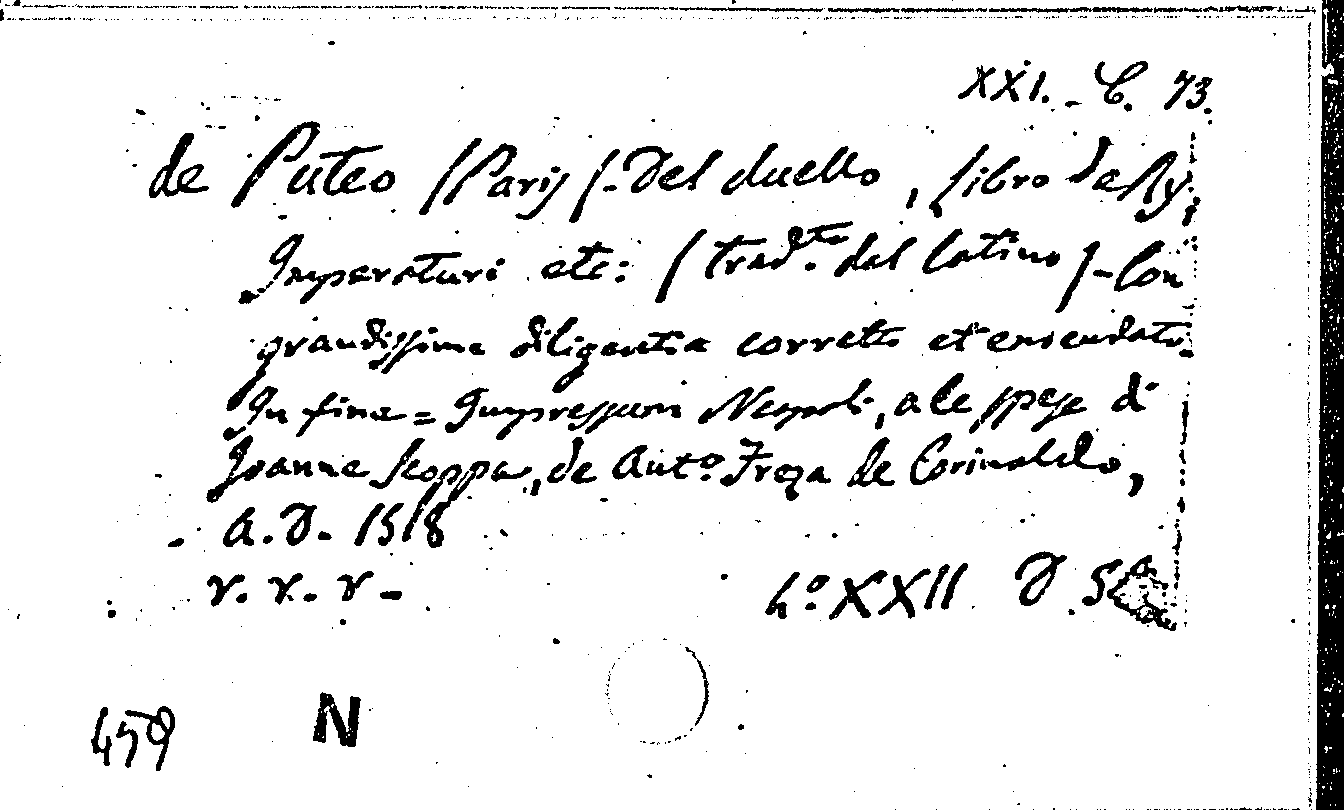 XXI. - C. 73.
de Puteo (Paris) - Del duello, libro de Ry,
Imperaturi etc: (trad.to dal latino) - Con
grandissima diligentia corretto et emendato.
In fine = Impressum Neapoli, a le spese di
Joanne Scoppa, de Ant.o Freza de Corinaldo,
A. D. 1518
r. r. r -
4.o XXII D.
459 N